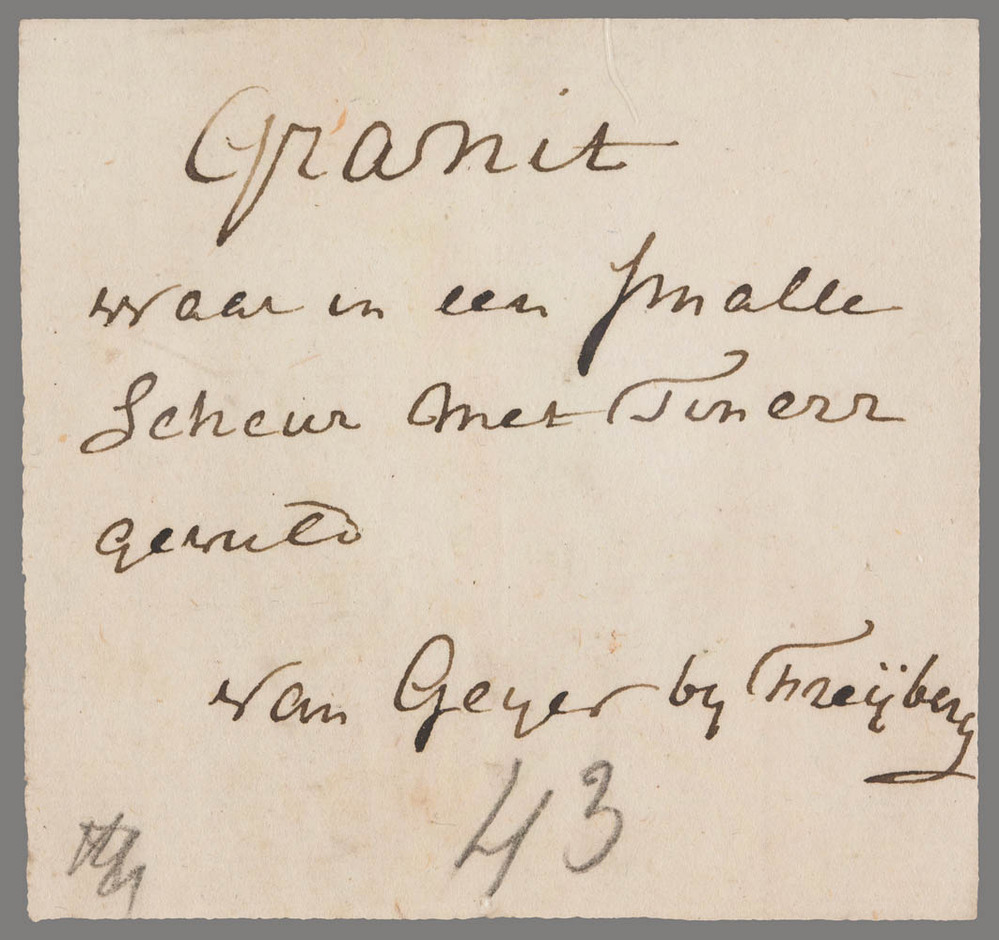 Granit
waar in een smalle
Scheur met Tinerz
gevuld
van Geyer by Freÿberg
43